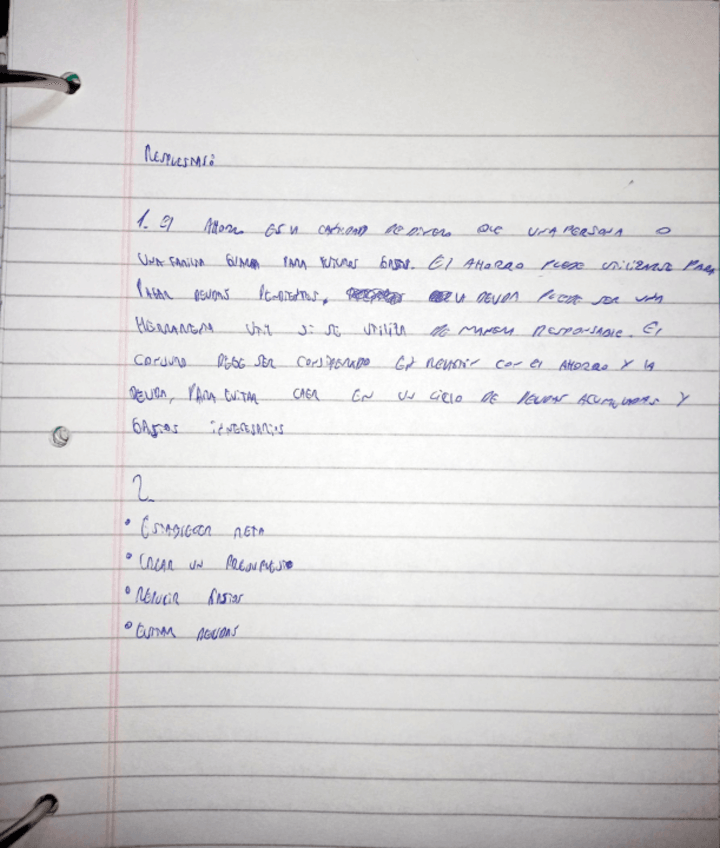 Respuestas:
1. El Ahorro es la cantidad de dinero que una persona o
una familia guarda para futuros gastos. El ahorro puede utilizarse para
pagar deudas pendientes, la deuda puede ser una
herramienta util si se utiliza de manera responsable. El
consumo debe ser considerado en con el ahorro y la
deuda, para evitar caer en un ciclo de deudas acumuladas y
gastos inecesarios
2
• Establecer meta
• Crear un presupuesto
• Reducir gastos
• Evitar deudas